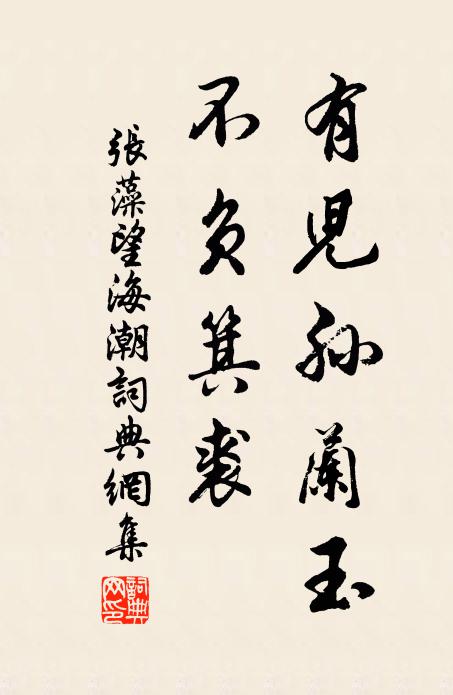 有児孫蘭玉
不負箕裘
張藻望海潮詞典網集
詞典網印